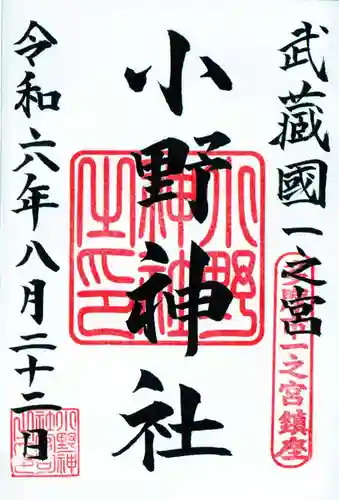 武藏國一之宮
一之宮鎮座
小野神社
小野神社之印
令和六年八月二十二日
小野神